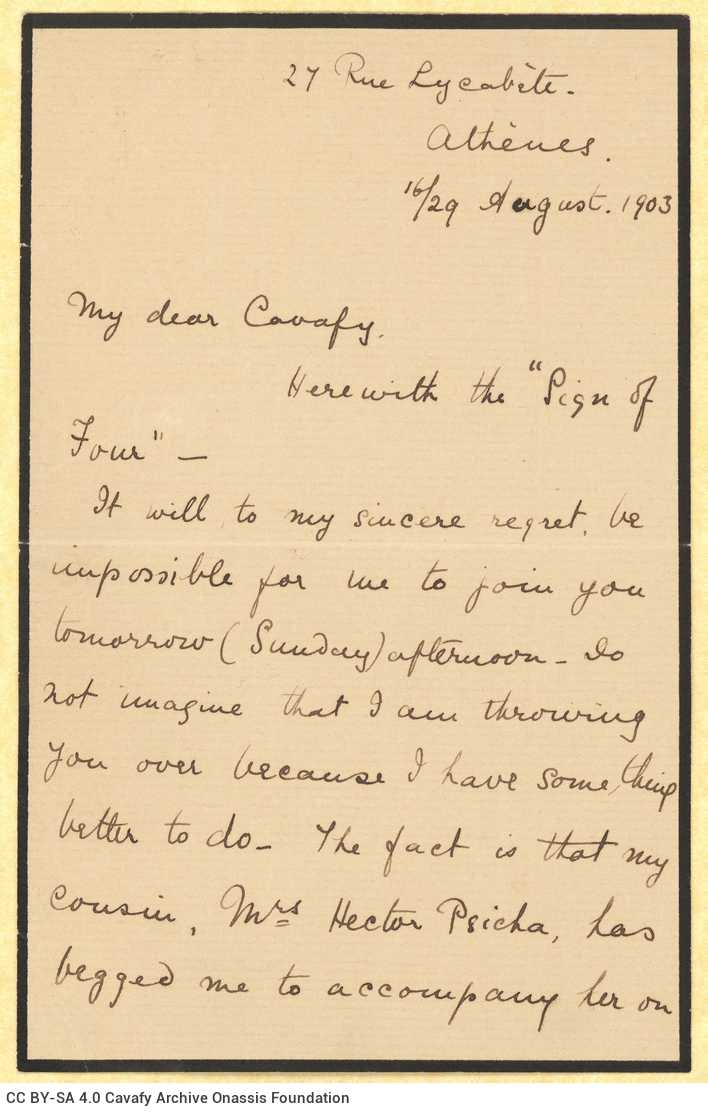 27 Rue Lycabète.
Athènes.
16/29 August. 1903
My dear Cavafy.
Herewith the "Sign of
Four" —
It will, to my sincere regret, be
impossible for me to join you
tomorrow (Sunday) afternoon — Do
not imagine that I am throwing
you over because I have something
better to do — The fact is that my
cousin, Mrs Hector Psicha, has
begged me to accompany her on
CC BY-SA 4.0 Cavafy Archive Onassis Foundation